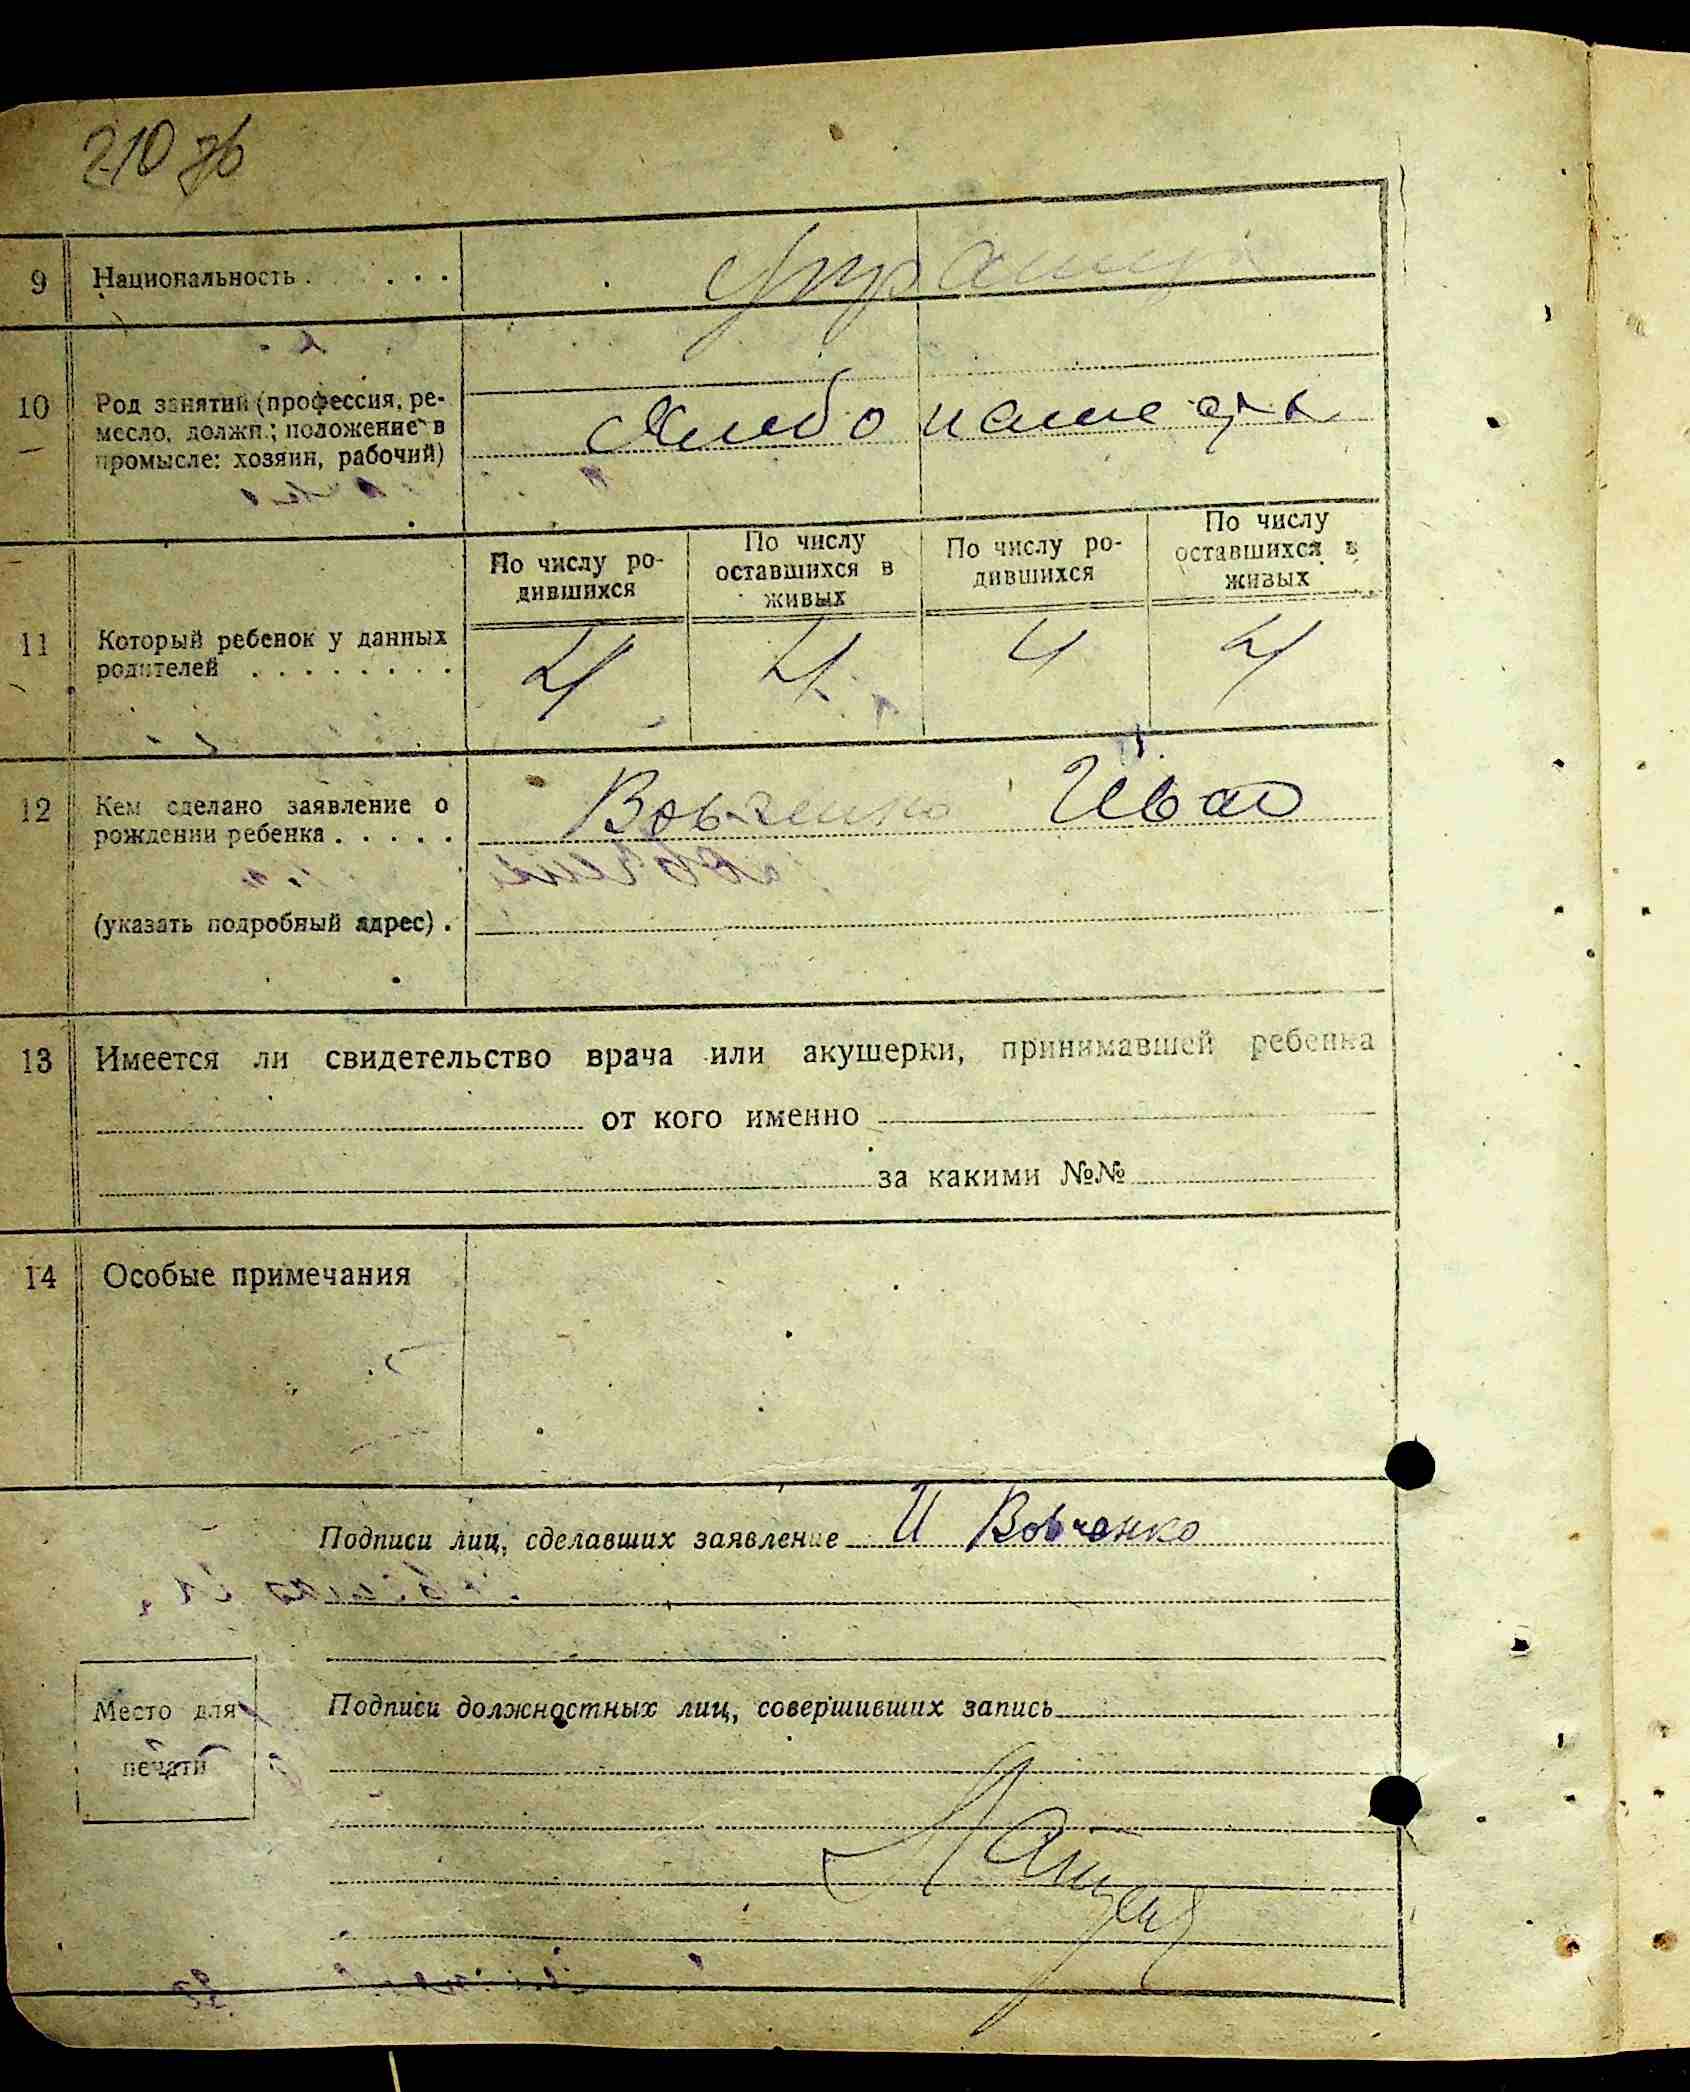 210 зв
9 Национальность . . . . .
10 Род занятий (профессия, ре-
месло, должн.; положение в
промысле: хозяин, рабочий)
Хлебопашеств
По числу ро-
дившихся
По числу
оставшихся в
живых
По числу ро-
дившихся
По числу
оставшихся в
живых
11 Который ребенок у данных
родителей . . . . . . . .
4 4 4 4
12 Кем сделано заявление о
рождении ребенка . . . . .
Вовченко Иван
(указать подробный адрес) .
13 Имеется ли свидетельство врача или акушерки, принимавшей ребенка
от кого именно
за какими №№
14 Особые примечания
Подписи лиц, сделавших заявление И Вовченко
Место для
печати
Подписи должностных лиц, совершивших запись